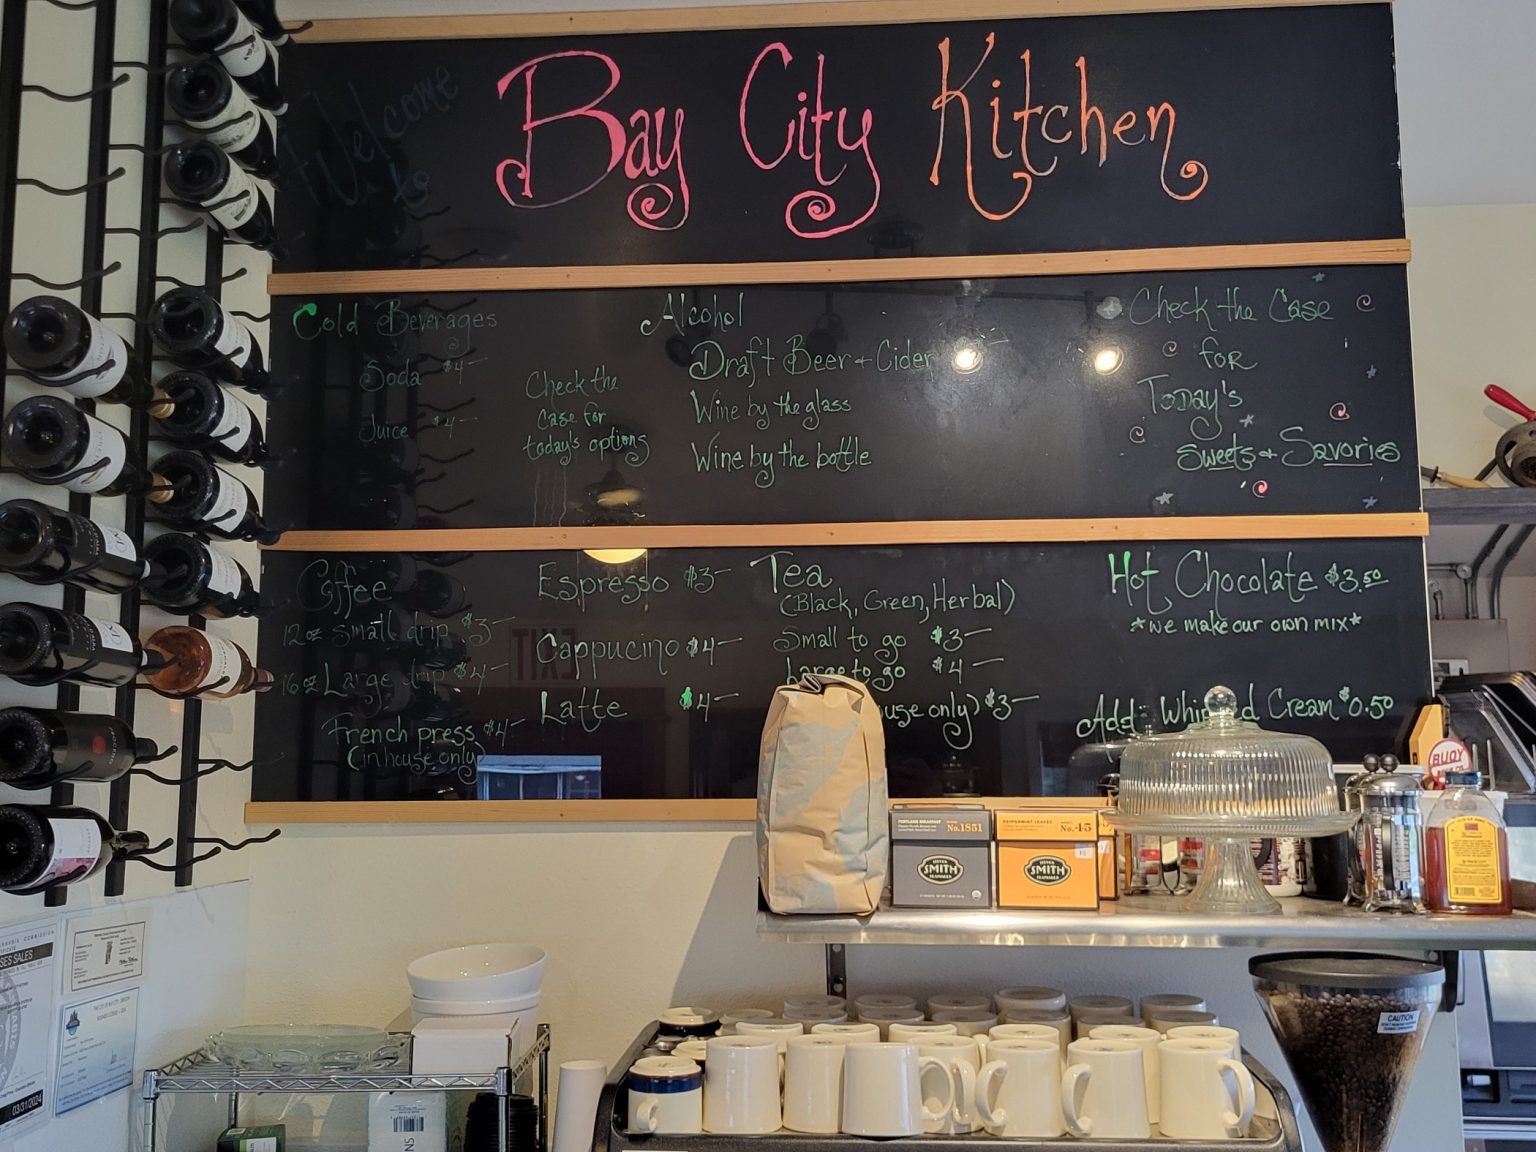 Welcome
to
Bay City Kitchen
Cold Beverages
Soda $4-
Juice $4-
Check the
Case for
today's options
Alcohol
Draft Beer + Cider
Wine by the glass
Wine by the bottle
Check the Case
for
Today's
Sweets + Savories
Coffee
12oz small drip $3-
16oz Large drip $4-
French press $4-
(in house only)
Espresso $3-
Cappucino $4-
Latte $4-
Tea
(Black, Green, Herbal)
Small to go $3-
Large to go $4-
use only) $3-
Hot Chocolate $3.50
*we make our own mix*
Add Whipped Cream $0.50
EXIT
BUOY
No.1851
PEPPERMINT LEAVES
No.45
SMITH
SMITH
CAUTION
SES SALES
03/31/2024